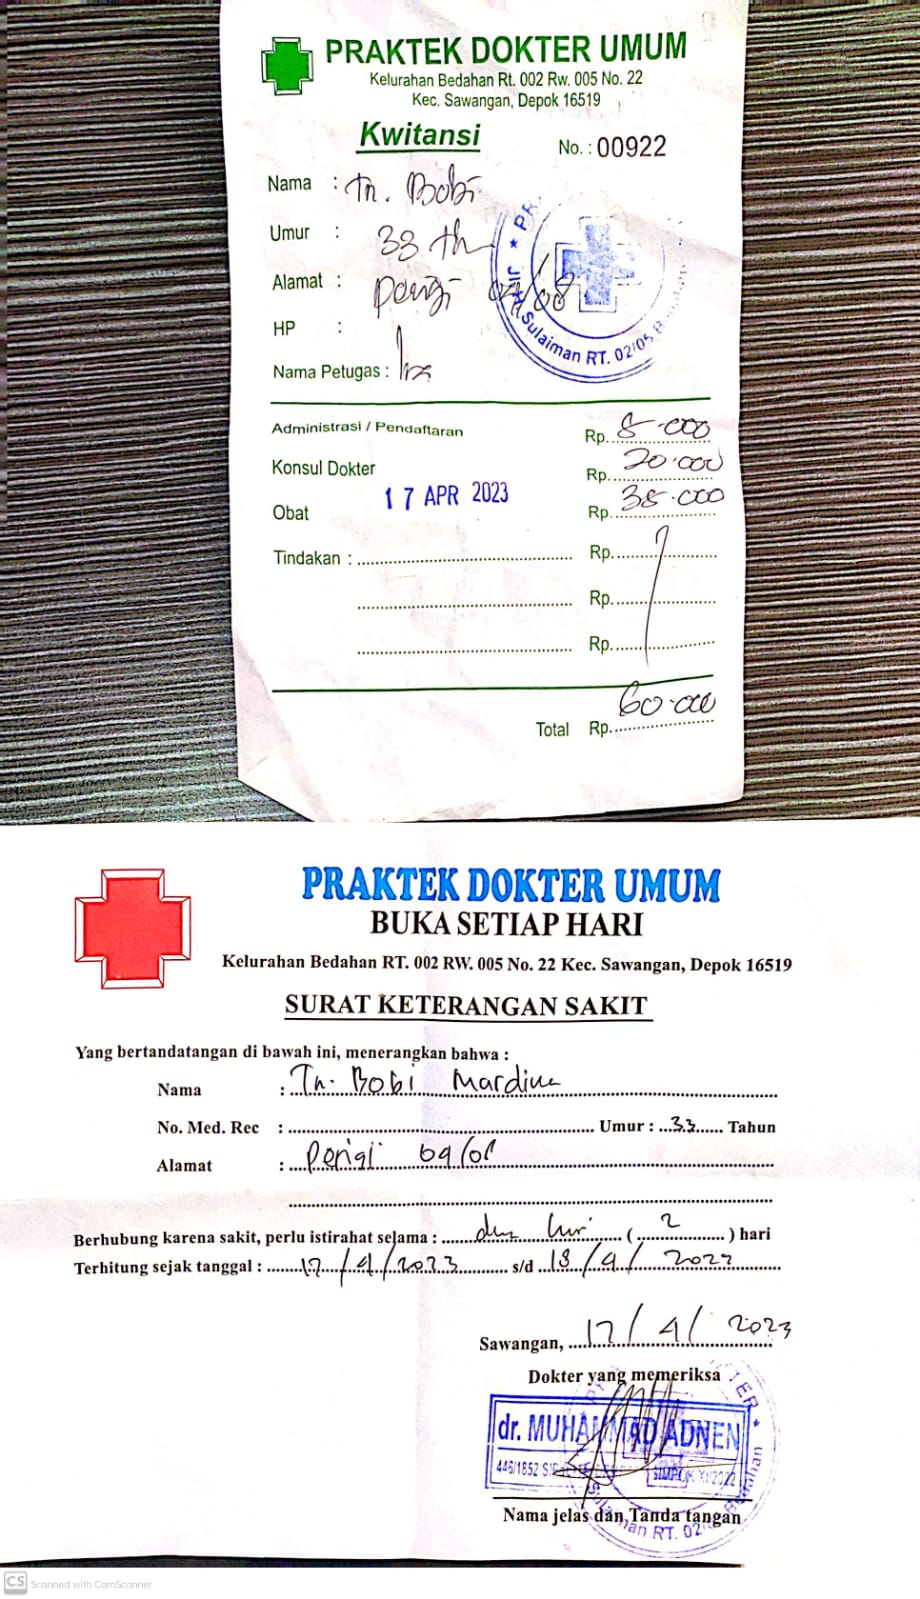 PRAKTEK DOKTER UMUM
Kelurahan Bedahan Rt. 002 Rw. 005 No. 22
Kec. Sawangan, Depok 16519
Kwitansi
No. : 00922
Nama : Tn. Bobi
Umur : 33 th
Alamat : Parigi 04/08
HP :
Nama Petugas :
Sulaiman RT. 02/05
Administrasi / Pendaftaran Rp. 5.000
Konsul Dokter Rp. 20.000
17 APR 2023
Obat Rp. 35.000
Tindakan : Rp.
Rp.
Rp.
Total Rp. 60.000
PRAKTEK DOKTER UMUM
BUKA SETIAP HARI
Kelurahan Bedahan RT. 002 RW. 005 No. 22 Kec. Sawangan, Depok 16519
SURAT KETERANGAN SAKIT
Yang bertandatangan di bawah ini, menerangkan bahwa :
Nama : Tn. Bobi
No. Med. Rec : Umur : 33 Tahun
Alamat : Perigi
Berhubung karena sakit, perlu istirahat selama : dua hari ( 2 ) hari
Terhitung sejak tanggal : 17/4/2023 s/d 18/4/2023
Sawangan, 17/4/2023
Dokter yang memeriksa
dr. MUHAMMAD ADNEN
446/1852
Nama jelas dan Tanda tangan
RT. 02
CS Scanned with CamScanner